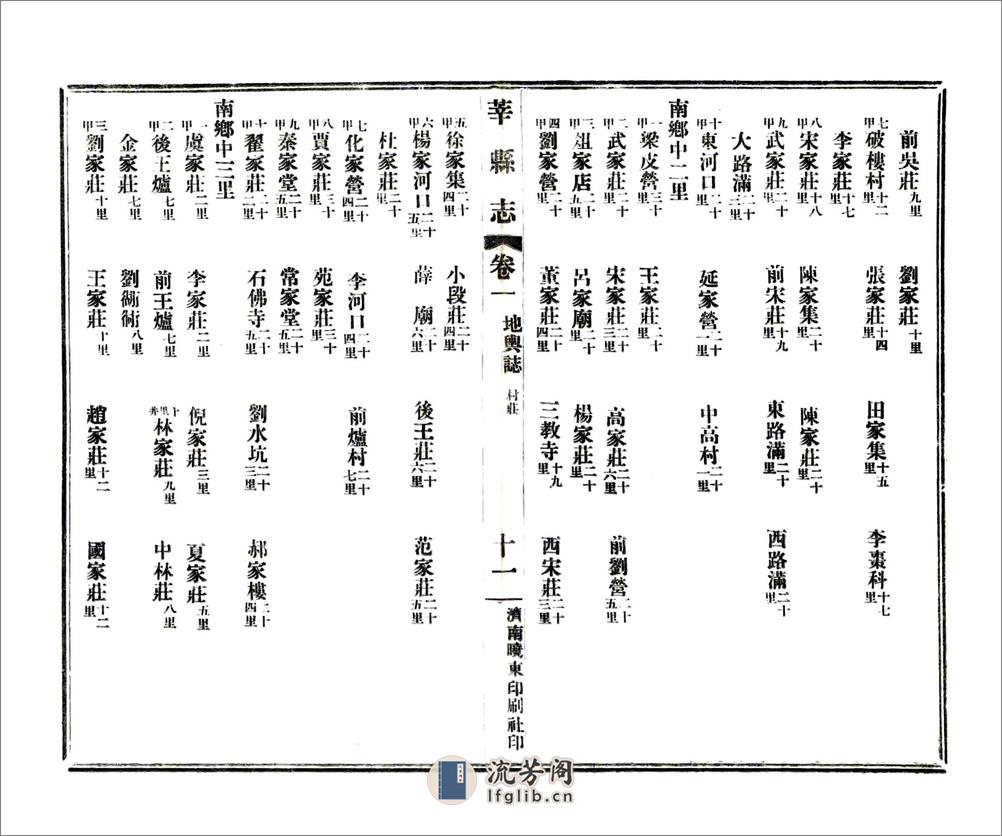 前吳莊九里 劉家莊十里
七甲破樓村十二里 張家莊十四里 田家集十五里 李棗科十七里
李家莊十七里
八甲宋家莊十八里 陳家集二十里 陳家莊二十里
九甲武家莊二十里 前宋莊十九里 東路滿二十里 西路滿二十里
大路滿二十三里
十甲東河口二十里 延家營二十一里 中高村二十一里
南鄉中二里
一甲梁皮營三十里 王家莊二十里
二甲武家莊二十二里 宋家莊二十三里 高家莊二十六里 前劉營二十五里
三甲俎家店二十五里 呂家廟二十里 楊家莊二十里
四甲劉家營二十里 董家莊二十四里 三教寺十九里 西宋莊二十三里
莘縣志 卷一 地輿誌 村莊 十一 濟南曉東印刷社印
五甲徐家集二十四里 小段莊二十四里
六甲楊家河口二十五里 薛廟二十六里 後王莊二十六里 范家莊二十五里
杜家莊二十里
七甲化家營二十四里 李河口二十四里 前爐村二十七里
八甲賈家莊三十里 苑家莊三十里
九甲秦家堂二十五里 常家堂二十五里
十甲翟家莊二十二里 石佛寺二十五里 劉水坑二十三里 郝家樓二十四里
南鄉中三里
一甲虞家莊二里 李家莊二里 倪家莊三里 夏家莊五里
二甲後王爐七里 前王爐七里 十里井林家莊九里 中林莊八里
金家莊七里 劉衚衕八里
三甲劉家莊十里 王家莊十里 趙家莊十二里 國家莊十二里
流芳阁
lfglib.cn